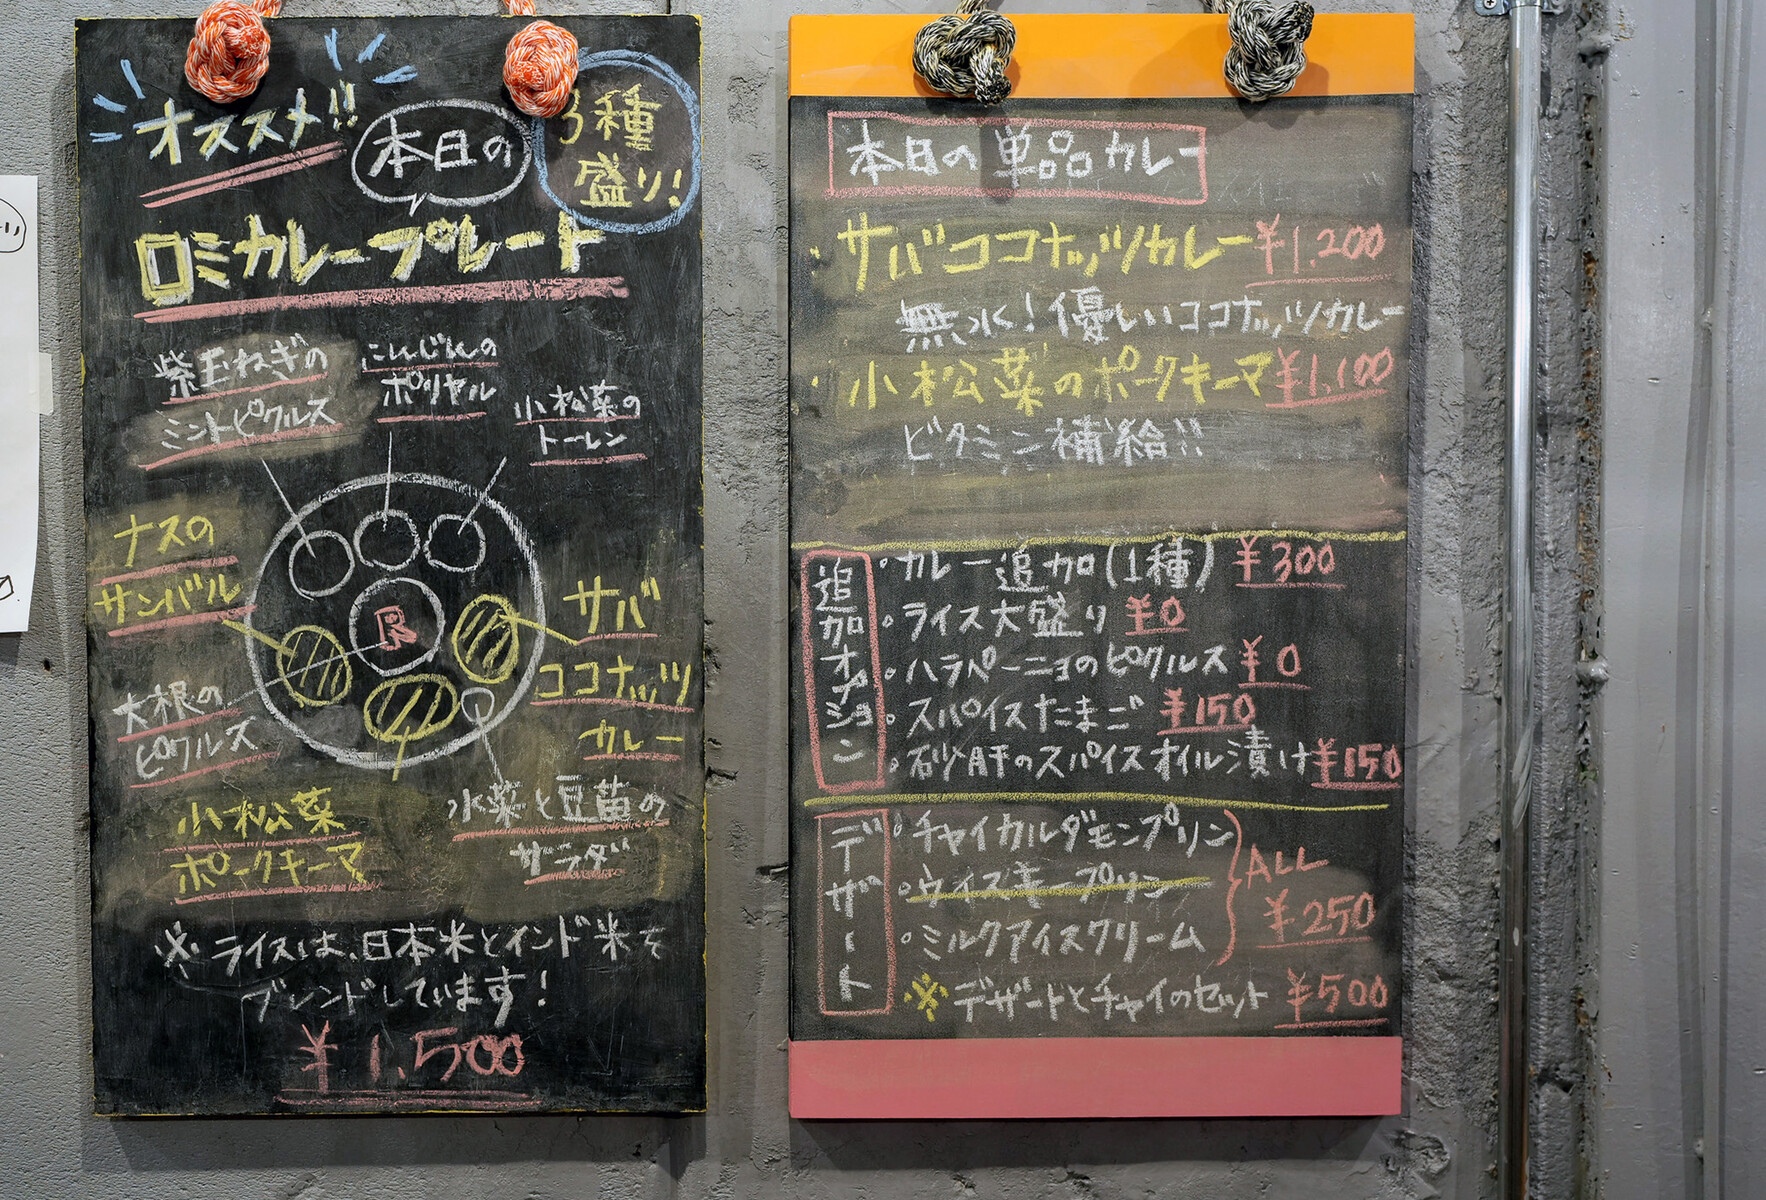 オススメ!!
本日の
3種
盛り!
ロミカレープレート
紫玉ねぎの
ミントピクルス
にんじんの
ポリヤル
小松菜の
トーレン
ナスの
サンバル
R
サバ
ココナッツ
カレー
大根の
ピクルス
小松菜
ポークキーマ
水菜と豆苗の
サラダ
※ライスは、日本米とインド米を
ブレンドしています!
¥1,500
本日の単品カレー
・サバココナッツカレー ¥1,200
無水!優しいココナッツカレー
・小松菜のポークキーマ ¥1,100
ビタミン補給!!
追加オプション
・カレー追加(1種) ¥300
・ライス大盛り ¥0
・ハラペーニョのピクルス ¥0
・スパイスたまご ¥150
・砂肝のスパイスオイル漬け ¥150
デザート
・チャイカルダモンプリン
・ウイスキープリン
・ミルクアイスクリーム
ALL
¥250
※デザートとチャイのセット ¥500